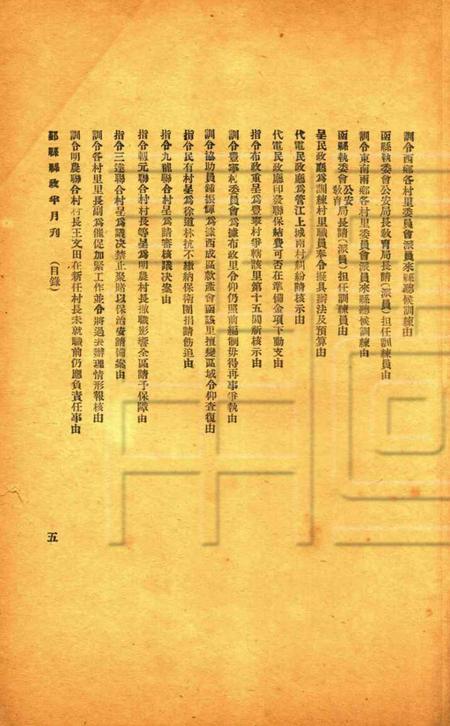 訓令西鄉各村里委員會派員來縣聽候訓練由
函縣執委會公安局長敎育局長請(派員)担任訓練員由
訓令東南兩鄉各村里委員會派員來縣聽候訓練由
函縣執委會公安局長請(派員)担任訓練員由
敎育
呈民政廳爲訓練村里職員奉令擬具辦法及預算由
代電民政廳爲管江上城南村糾紛請核示由
代電民政廳印發聯保結費可否在準備金項下動支由
指令布政里呈爲豐東村爭轄該里第十五閭祈核示由
訓令豐寧村委員會爲據布政里令仰仍照前編制毋得再事爭執由
訓令協助員鍾振
爲據西成區款產會函該里擅變區域令仰查復由
指令民有村呈爲徐道林抗不繳納保衛團捐請飭追由
指令九龍聯合村呈爲請審核議決案由
指令三逵聯合村呈爲議決禁止聚賭以保治安請備案由
訓令各村里里長副爲催促加緊工作並令將過去辦理情形報核由
訓令明農聯合村村長王文田在新任村長未就職前仍應負責任事由
鄞縣縣政半月刊
(目錄)
五